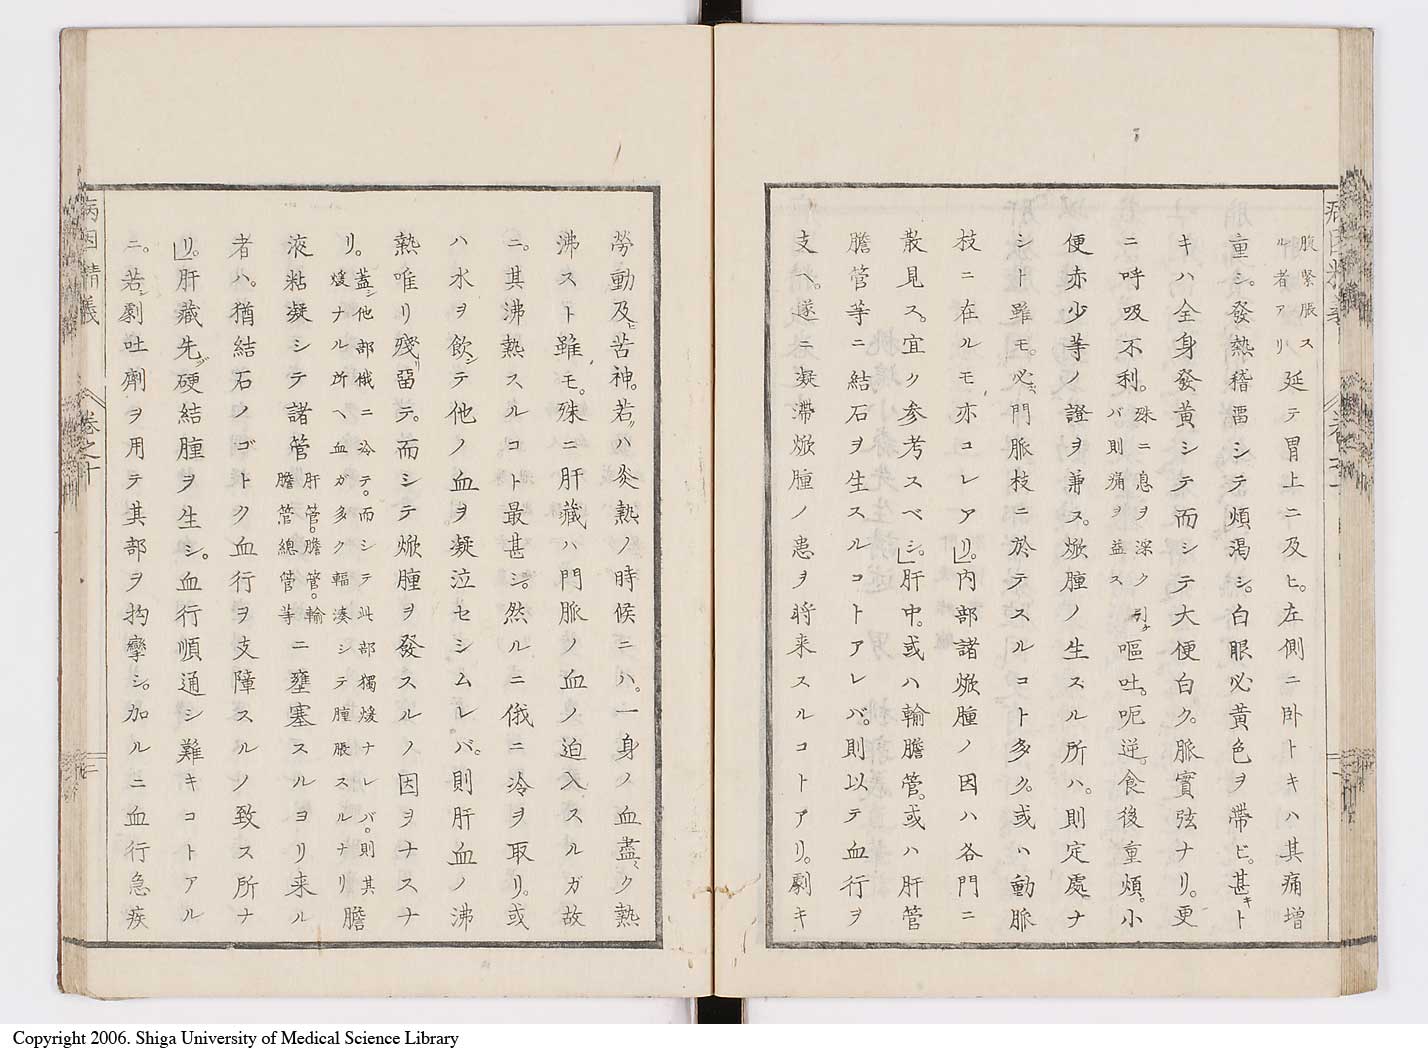 腹緊脹ス
ル者アリ延テ胃上ニ及ヒ。左側ニ卧トキハ其痛増
重シ。發熱稽畱シテ煩渴シ。白眼必黄色ヲ帶ビ。甚キト
キハ全身發黄シテ而シテ大便白ク。脈實弦ナリ。更
ニ呼吸不利。殊ニ息ヲ深ク引ケバ則痛ヲ益ス嘔吐。呃逆。食後重煩。小
便赤少等ノ證ヲ兼ス。焮腫ノ生スル所ハ。則定處ナ
シト雖モ。必ス門脈枝ニ於テスルコト多ク。或ハ動脈
枝ニ在ルモ亦コレアリ。」内部諸焮腫ノ因ハ各門ニ
散見ス。宜ク参考スベシ。」肝中。或ハ輸膽管。或ハ肝管
膽管等ニ結石ヲ生スルコトアレバ。則以テ血行ヲ
支ヘ。遂ニ凝滯焮腫ノ患ヲ将来スルコトアリ。劇キ
勞動及ヒ苦神。若クハ炎熱ノ時候ニハ。一身ノ血盡ク熱
沸スト雖モ。殊ニ肝藏ハ門脈ノ血ノ迫入スルガ故
ニ。其沸熱スルコト最甚シ。然ルニ俄ニ冷ヲ取リ。或
ハ水ヲ飲シテ他ノ血ヲ凝泣セシムレバ。則肝血ノ沸
熱唯リ殘リ畱テ。而シテ焮腫ヲ發スルノ因ヲナスナ
リ。蓋シ他部俄ニ冷テ。而シテ此部獨煖ナレバ。則其煖ナル所ヘ血ガ多ク輻湊シテ腫脹スルナリ膽
液粘凝シテ諸管肝管。膽管。輸膽管總管等ニ壅塞スルヨリ来ル
者ハ。猶結石ノゴトク血行ヲ支障スルノ致ス所ナ
リ。」肝藏先ヅ硬結腫ヲ生シ。血行順通シ難キコトアル
ニ。若シ劇吐劑ヲ用テ其部ヲ拘攣シ。加ルニ血行急疾
病因精義
卷之十
二
Copyright 2006. Shiga University of Medical Science Library